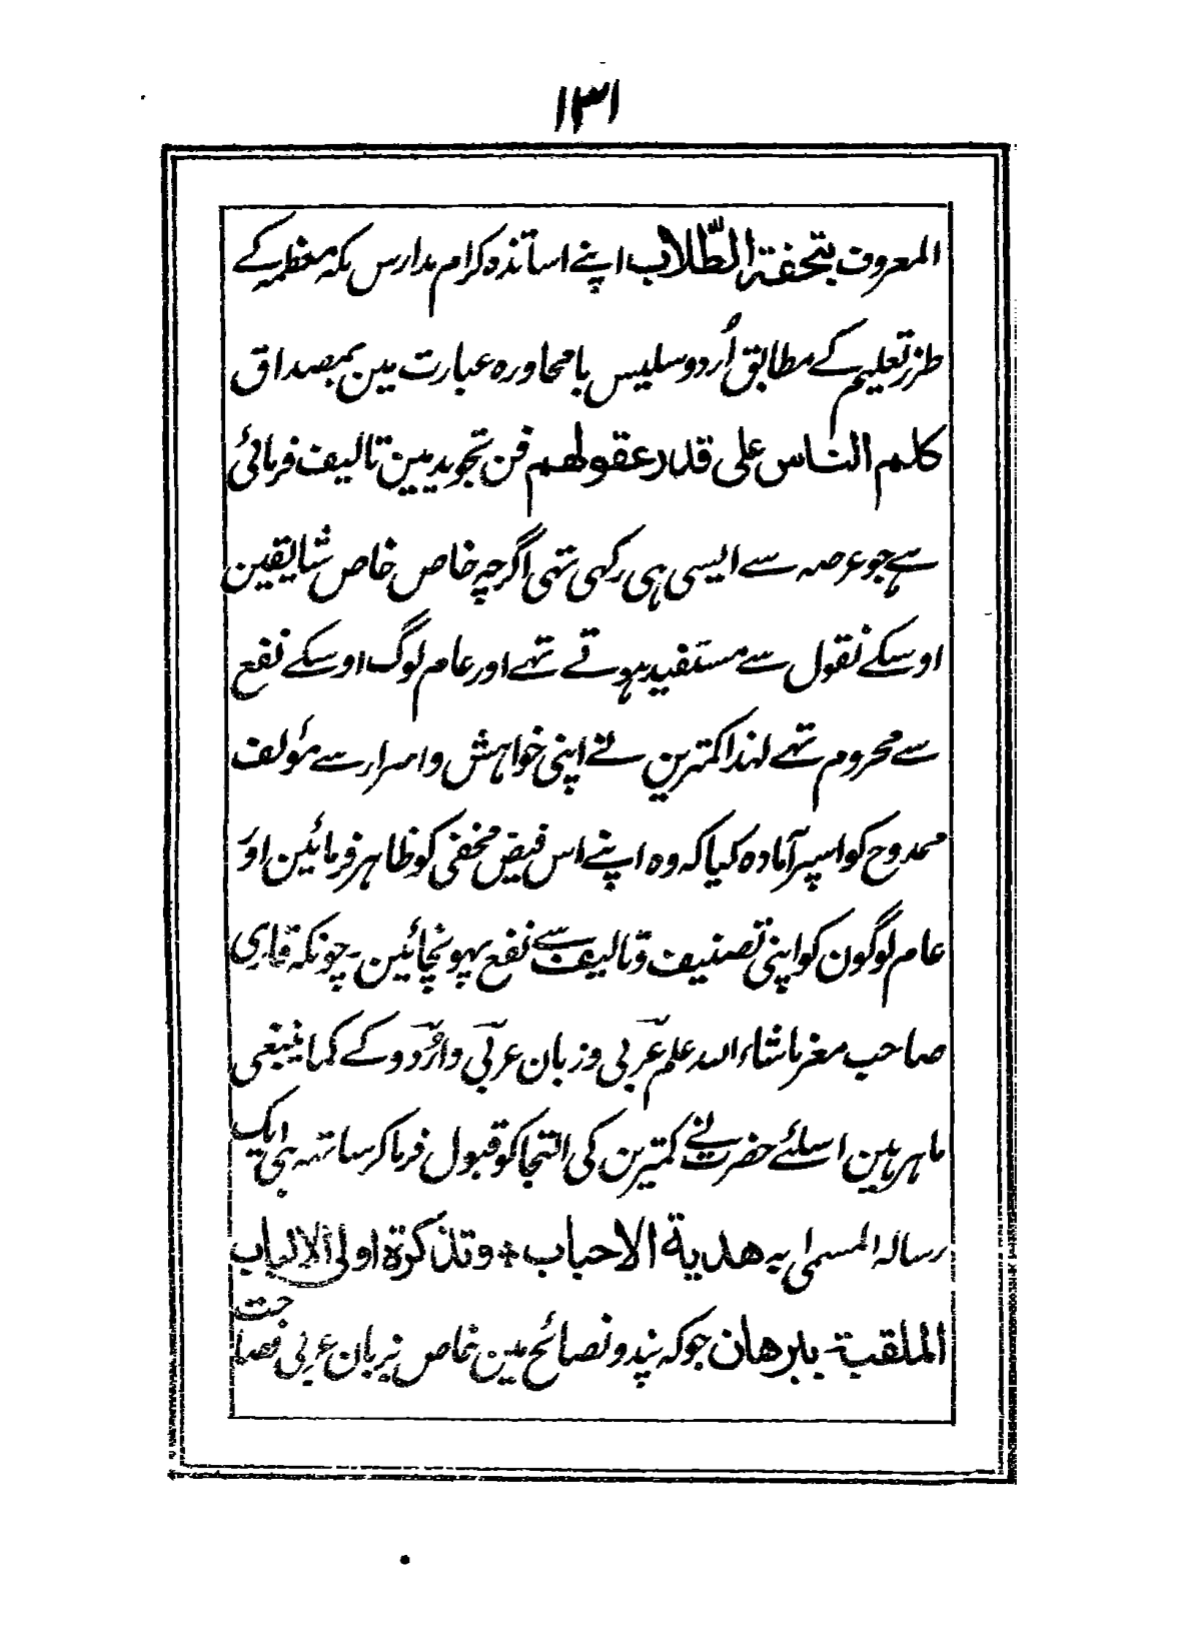 ۱۳۱
المعروف بتحفۃ الطّلاب اپنے اساتذہ کرام مدارس مکہ معظمہ کے
طرز تعلیم کے مطابق اُردو سلیس با محاورہ عبارت مین بمصداق
کلم الناس علی قدر عقولھم فن تجوید مین تالیف فرمائی
ہے جو عرصہ سے ایسی ہی رکہی تہی اگرچہ خاص خاص شایقین
اوسکے نقول سے مستفید ہوتے تہے اور عام لوگ اوسکے نفع
سے محروم تہے لہذا کمترین نے اپنی خواہش و اسرار سے مؤلف
ممدوح کو اسپر آمادہ کیا کہ وہ اپنے اس فیض مخفی کو ظاہر فرمائین اور
عام لوگون کو اپنی تصنیف و تالیف سے نفع پہونچائین۔ چونکہ قاری
صاحب مغر ماشاء اللہ علم عربی و زبان عربی و اُردو کے کما ینبغی
ماہر ہین اسلئے حضرت نے کمترین کی التجا کو قبول فرما کر ساتہہ ہی ایک
رسالہ المسمی بہ ھدیۃ الاحباب + وتذکرۃ اولی الالباب
الملقبۃ ببرھان جو کہ پند و نصائح مین خاص زبان عربی فصاحت